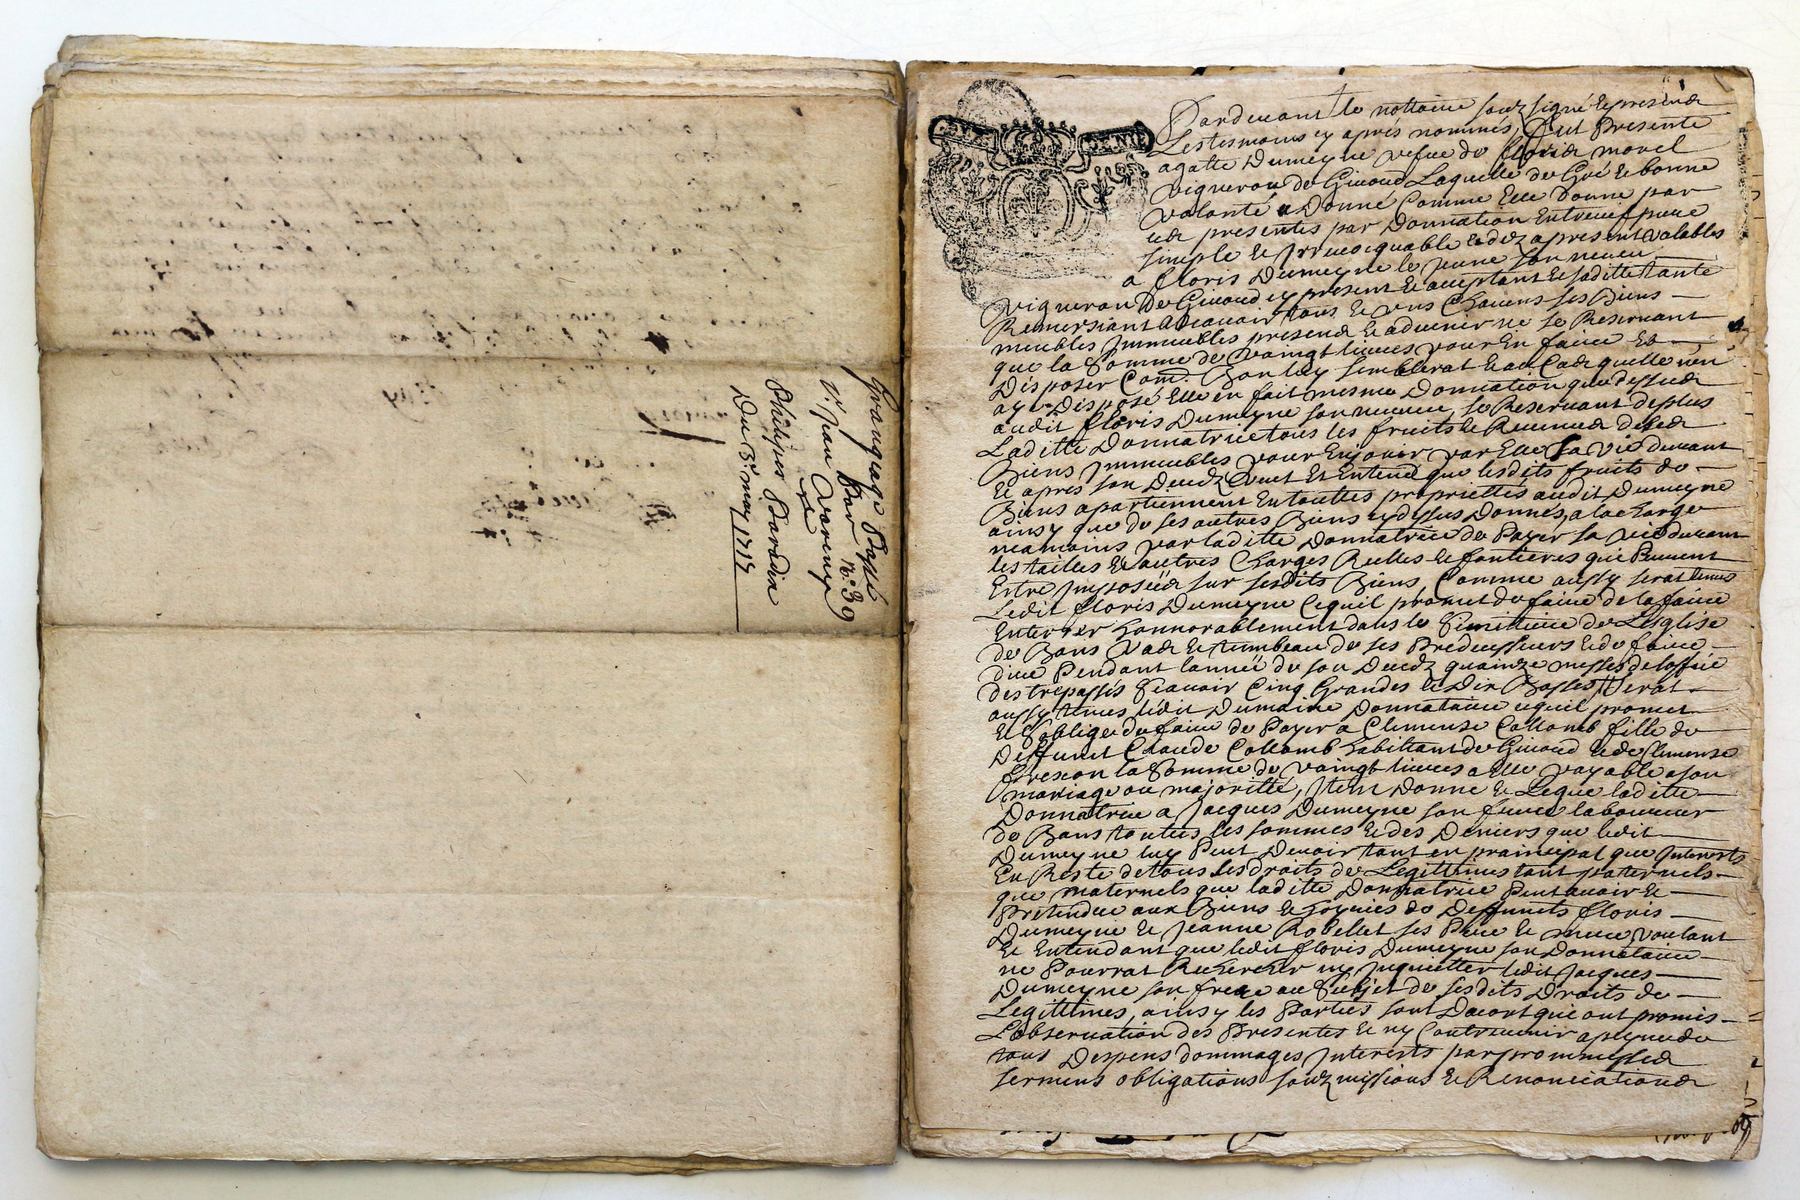 Granquage Passé
Par n.° 39
Sr. Jean Varenyx
&
Philipes Paradin
Du 3.e may 1717
Pardeuant le nottaire souz signé & presence
Les tesmoins cy apres nommés, fut Presente
agatte Dumeyne vefue de floris morel
vigneron de Giuoud Laquelle de Gré & bonne
volonté a Donné Comme Elle Donne par
ces presentes par Donnation Entreuifz pure
simple & Irreuocquable & dez apresent valable
a floris Dumeyne le Jeune son neueu
vigneron De Giuoud cy present & acceptant & saditte tante
Remersiant Ascauoir tous & uns Chacuns ses Biens
meubles Immeubles presens & aduenir ne se Reseruant
que la Somme de vaingt liures pour En faire &
Disposer Com.e Bon luy semblerat & au Cas quelle nen
aye Disposé Elle en fait mesme Donnation que dessus
audit floris Dumeyne son neueu, se Reseruant deplus
Laditte Donnatrice tous les fruits & Reuenus desdes
Biens Immeubles pour En jouir par Elle sa vie durant
& apres son Decedz Veut Et Entend que lesdits fruits &
Biens apartiennent En touttes propriettes audit Dumeyne
ainsy que de ses autres Biens cy dessus Donnes, a la charge
neamoins par laditte Donnatrice de Payer sa vie durant
les tailles & autres Charges Reelles & fontieres qui Peuuent
Estre Imposées sur sesdits Biens, Comme aussy serat tenus
Ledit floris Dumeyne Ce quil promet de faire de la faire
Enterrer honnorablement dans le Simittiere de Lesglise
de Bans Vas & tumbeau de ses Predecesseurs & de faire
dire Pendant lannée de son Decedz quainze messes de loffice
des trepassés Scauoir Cinq Grandes & Dix Basses, Serat
aussy tenus ledit Dumaine Donnataire cequil promet
& Soblige de faire de Payer a Clemense Collomb fille de
Deffunct Claude Collomb habittant de Giuoud & de Clemense
la Somme de vaingt liures a Elle payable a son
mariage ou majoritté, Item Donne & Legue laditte
Donnatrice a Jacques Dumeyne son frere laboureur
de Bans touttes les sommes & des Deniers que ledit
Dumeyne luy Peut Deuoir tant en prainsipal que Interests
En Reste de tous les droits de Legittimes tant paternels
que maternels que laditte Donnatrice Peut auoir &
Prétendre aux Biens & hoyries de Deffunets floris
Dumeyne & Jeanne Robellet ses Pere & mere voulant
& Entendant que ledit floris Dumeyne son Donnataire
ne Pourrat Rechercher ny Inquietter ledit Jacques
Dumeyne son frere au Subjet de sesdits Droits de
Legittimes, ainsy les Parties sont Dacort qui ont promis
L'observation des Presentes & ny Contreuenir a peyne de
tous Despens dommages Interests par prommesses
sermens obligations souzmissions & Renonciations